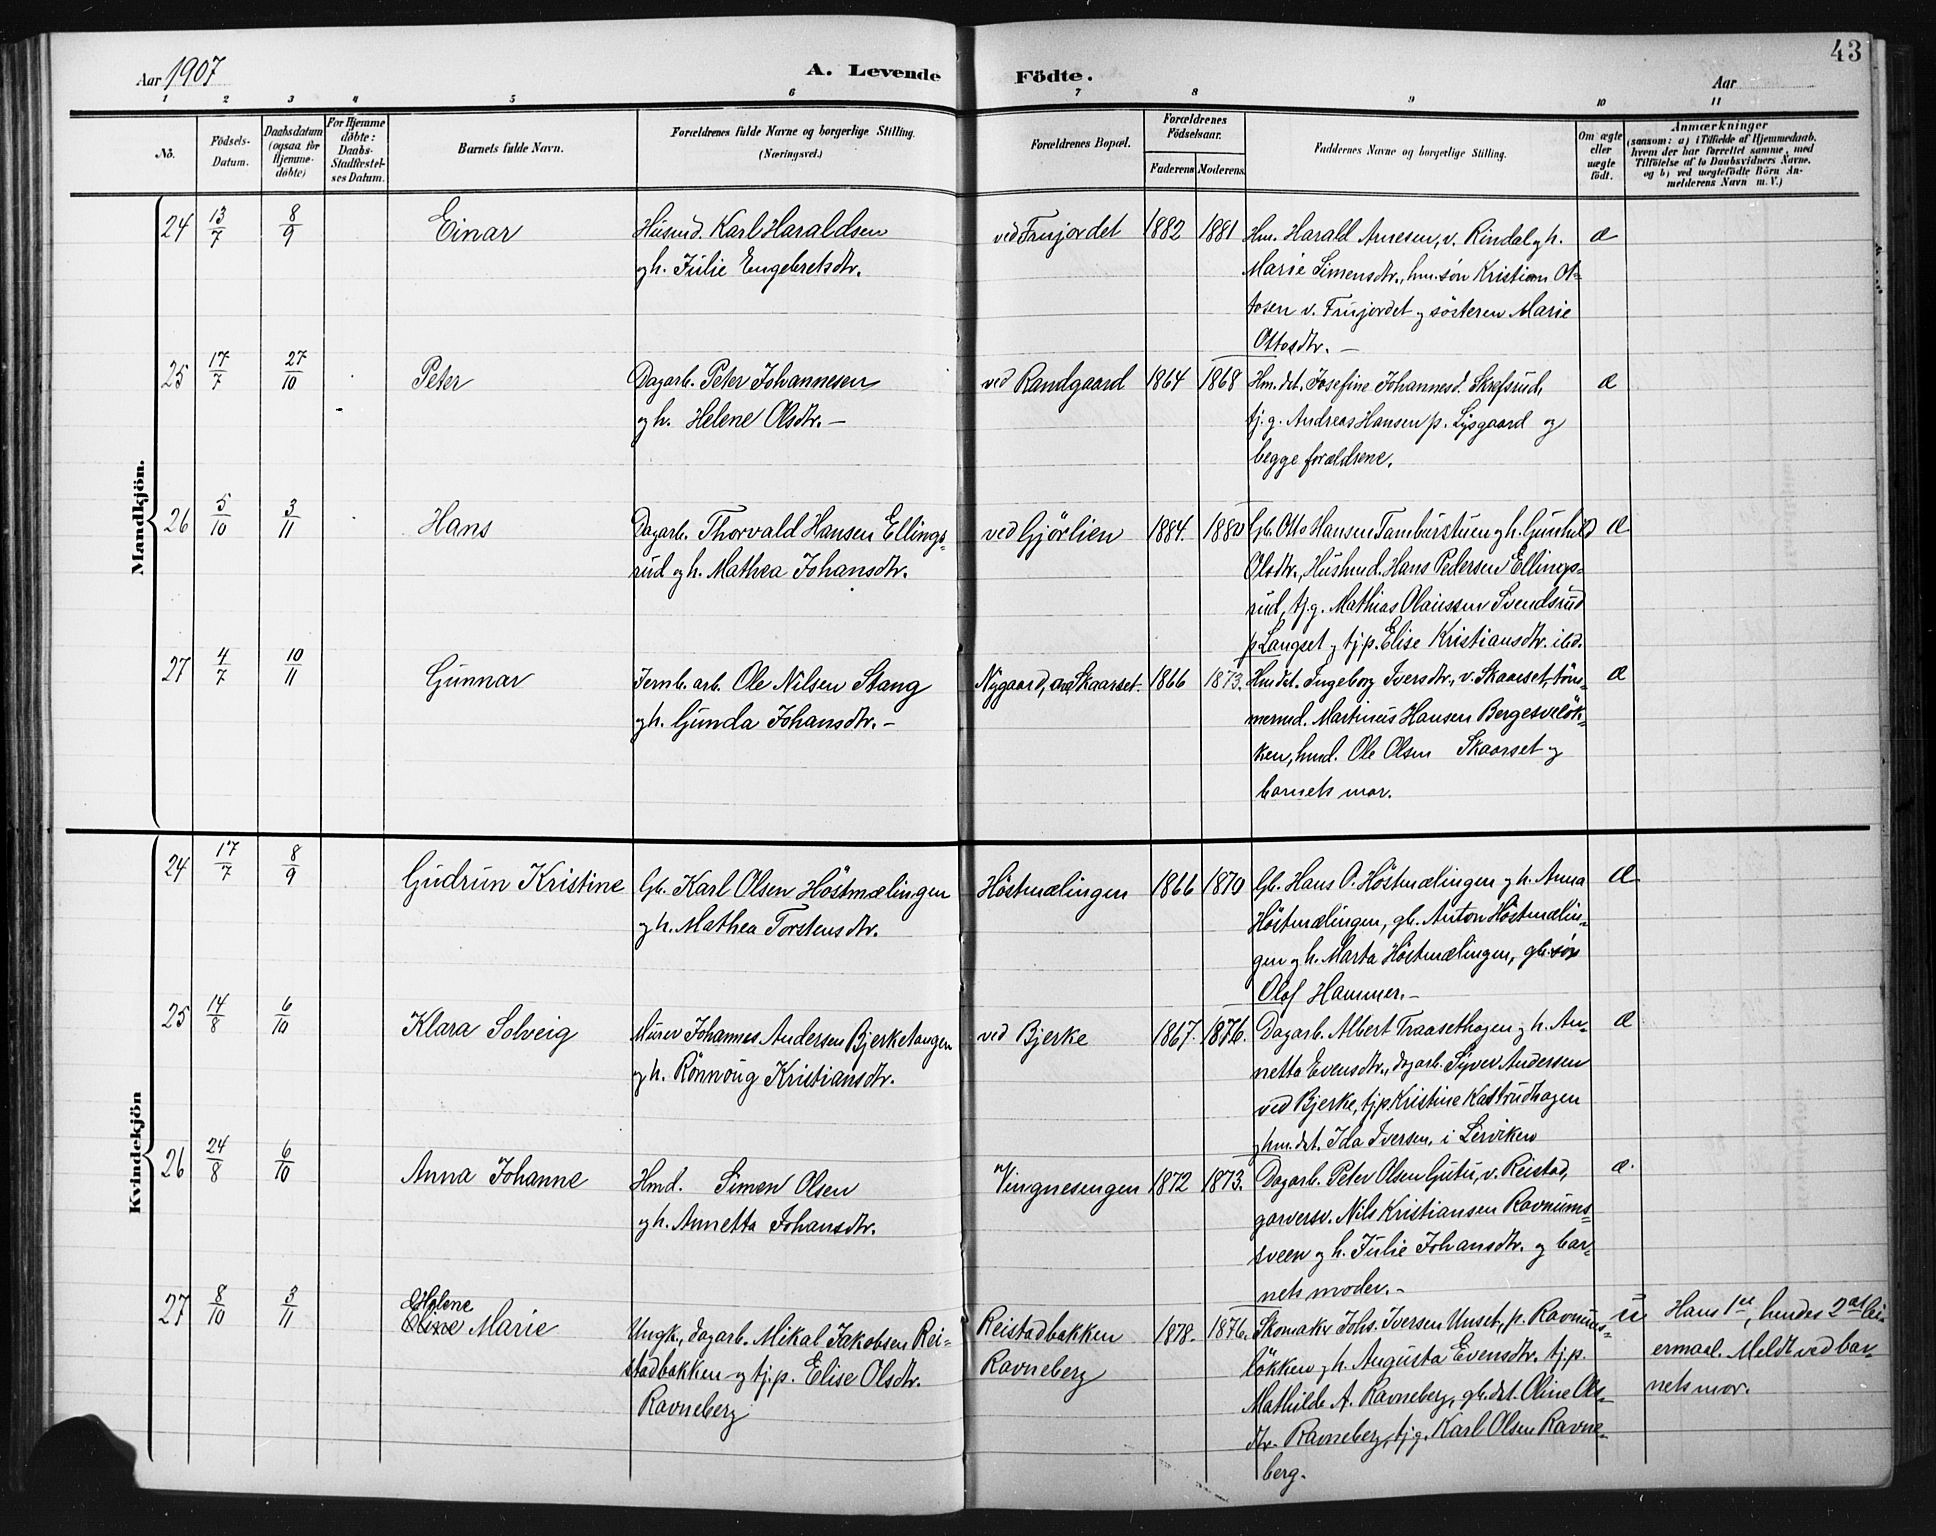 43
Aar 1907
A. Levende Födte.
Aar
1 2 3 4 5 6 7 8 9 10 11
No.
Födsels-
Datum.
Daabsdatum
(ogsaa for
Hjemme-
döbte)
For Hjemme
döbte:
Daabs-
Stadfæstel-
ses Datum.
Barnets fulde Navn.
Forældrenes fulde Navne og borgerlige Stilling.
(Næringsvei.)
Forældrenes Bopæl.
Forældrenes
Födselsaar.
Faderens Moderens
Faddernes Navne og borgerlige Stilling.
Om ægte
eller
uægte
födt.
Anmærkninger
(saasom: a) i Tilfælde af Hjemmedaab,
hvem der har forrettet samme, med
Tilföielse af to Daabsvidners Navne,
og b) ved uægtefödte Börn An-
melderens Navn m. V.)
Mandkjön.
24 13/7 8/9 Einar
Husmd. Karl Haraldsen
og h. Julie Engebretsdtr.
ved Frujordet 1882 1881
Hm. Harald Arnesen, v. Rindal og h.
Marie Simensdtr., hm.søn Kristian Ot-
tosen v. Frujordet og søsteren Marie
Ottosdtr. —
æ
25 17/7 27/10 Peter
Dagarb. Peter Johannesen
og h. Helene Olsdtr. —
ved Randgaard 1864 1868
Hm. dat. Josefine Johannesd. Skrefsrud,
tj.g. Andreas Hansen p. Lysgaard og
begge forældrene.
æ
26 5/10 3/11 Hans
Dagarb. Thorvald Hansen Ellings-
rud og h. Mathea Johansdtr.
ved Gjørlien 1884. 1880
Gb. Otto Hansen Tamburstuen og h. Gunhild
Olsdtr., Husmd. Hans Pedersen Ellings-
rud, tj.g. Mathias Olaussen Svendsrud
p Langset og tj.p. Elise Kristiansdtr. ibd.
æ
27 4/7 10/11 Gunnar
Jernb. arb. Ole Nilsen Stang
og h. Gunda Johansdtr. —
Nygaard, Skaarset 1866 1873.
Hm dat. Ingeborg Iversdtr., v. Skaarset, töm-
mermd. Martinus Hansen Bergesveløk-
ken, hmd. Ole Olsen Skaarset og
barnets mor.
æ
Kvindekjön
24 17/7 8/9 Gudrun Kristine
Gb. Karl Olsen Höstmælingen
og h. Mathea Torstensdtr.
Höstmælingen 1866 1870
Gb. Hans O. Höstmælingen og h. Anna
Höstmælingen, gb. Anton Höstmælin-
gen og h. Marta Höstmælingen, gb.søn
Olof Hammer. —
æ
25 14/8 6/10 Klara Solveig
Murer Johannes Andersen Bjerketangen
og h. Rönnoug Kristiansdtr.
ved Bjerke 1867. 1876.
Dagarb. Albert Traasethagen og h. An-
netta Evensdtr., dagarb. Syver Andersen
ved Bjerke, tj.p Kristine Kastrudhagen
og hm. dat. Ida Iversen, i Lerviken
æ
26 24/8 6/10 Anna Johanne
Hmd. Simen Olsen
og h. Annetta Johansdtr.
Vingnesengen 1872 1873.
Dagarb. Peter Olsen Gutu, v. Reistad,
garversv. Nils Kristiansen Ravnums-
sveen og h. Julie Johansdtr. og bar-
nets moder. —
æ.
27 8/10 3/11 Helene
Marie
Ungk., dagarb. Mikal Jakobsen Rei-
stadbakken og tj.p. Elise Olsdtr.
Ravneberg
Reistadbakken 1878. 1876.
Ravneberg
Skomaker Johs. Iversen Unset, p. Ravnums-
løkken og h. Augusta Evensdtr. tj.p.
Mathilde A. Ravneberg, gb. dat. Oline Ols-
dtr. Ravneberg, tj.g. Karl Olsen Ravne-
berg.
u
Hans 1ste, hendes 2det lei-
ermaal. Meldt ved bar-
nets mor.